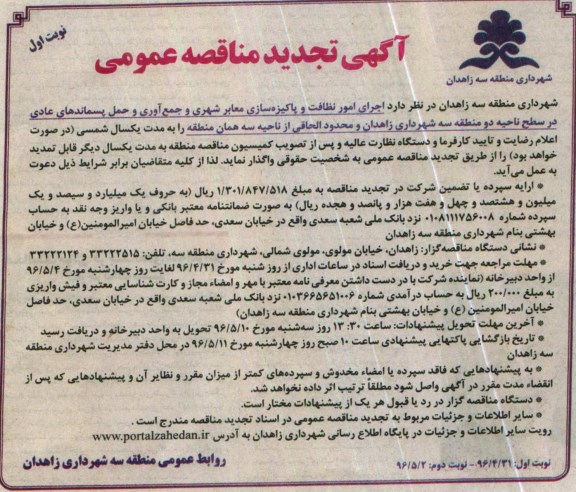 نوبت اول
آگهی تجدید مناقصه عمومی
شهرداری منطقه سه زاهدان
شهرداری منطقه سه زاهدان در نظر دارد اجرای امور نظافت و پاکیزه‌سازی معابر شهری و جمع‌آوری و حمل پسماندهای عادی
در سطح ناحیه دو منطقه سه شهرداری زاهدان و محدود الحاقی از ناحیه سه همان منطقه را به مدت یکسال شمسی (در صورت
اعلام رضایت و تایید کارفرما و دستگاه نظارت عالیه و پس از تصویب کمیسیون مناقصه منطقه به مدت یکسال دیگر قابل تمدید
خواهد بود) را از طریق تجدید مناقصه عمومی به شخصیت حقوقی واگذار نماید. لذا از کلیه متقاضیان برابر شرایط ذیل دعوت
به عمل می‌آید.
* ارایه سپرده یا تضمین شرکت در تجدید مناقصه به مبلغ ۱/۳۰۱/۸۴۷/۵۱۸ ریال (به حروف یک میلیارد و سیصد و یک
میلیون و هشتصد و چهل و هفت هزار و پانصد و هجده ریال) به صورت ضمانتنامه معتبر بانکی و یا واریز وجه نقد به حساب
سپرده شماره ۰۱۰۸۱۱۱۷۵۶۰۰۸ نزد بانک ملی شعبه سعدی واقع در خیابان سعدی، حد فاصل خیابان امیرالمومنین(ع) و خیابان
بهشتی بنام شهرداری منطقه سه زاهدان
* نشانی دستگاه مناقصه‌گزار: زاهدان، خیابان مولوی، مولوی شمالی، شهرداری منطقه سه، تلفن: ۳۳۲۲۲۵۱۵ و ۳۳۲۲۲۱۲۴
* مهلت مراجعه جهت خرید و دریافت اسناد در ساعات اداری از روز شنبه مورخ ۹۶/۴/۳۱ لغایت روز چهارشنبه مورخ ۹۶/۵/۴
از واحد دبیرخانه (نماینده شرکت با در دست داشتن معرفی نامه معتبر با مهر و امضاء مجاز و کارت شناسایی معتبر و فیش واریزی
به مبلغ ۲۰۰/۰۰۰ ریال به حساب درآمدی شماره ۰۱۰۳۶۶۵۶۵۱۰۰۶ نزد بانک ملی شعبه سعدی واقع در خیابان سعدی، حد فاصل
خیابان امیرالمومنین (ع) و خیابان بهشتی بنام شهرداری منطقه سه زاهدان)
* آخرین مهلت تحویل پیشنهادات: ساعت ۱۳:۳۰ روز سه‌شنبه مورخ ۹۶/۵/۱۰ تحویل به واحد دبیرخانه و دریافت رسید
* تاریخ بازگشایی پاکتهایی پیشنهادی ساعت ۱۰ صبح روز چهارشنبه مورخ ۹۶/۵/۱۱ در محل دفتر مدیریت شهرداری منطقه
سه زاهدان
* به پیشنهادهایی که فاقد سپرده یا امضاء مخدوش و سپرده‌های کمتر از میزان مقرر و نظایر آن و پیشنهادهایی که پس از
انقضاء مدت مقرر در آگهی واصل شود مطلقاً ترتیب اثر داده نخواهد شد.
* دستگاه مناقصه گزار در رد یا قبول هر یک از پیشنهادات مختار است.
* سایر اطلاعات و جزئیات مربوط به تجدید مناقصه عمومی در اسناد تجدید مناقصه مندرج است.
رویت سایر اطلاعات و جزئیات در پایگاه اطلاع رسانی شهرداری زاهدان به آدرس www.portalzahedan.ir
نوبت اول: ۹۶/۴/۳۱ - نوبت دوم: ۹۶/۵/۲
روابط عمومی منطقه سه شهرداری زاهدان